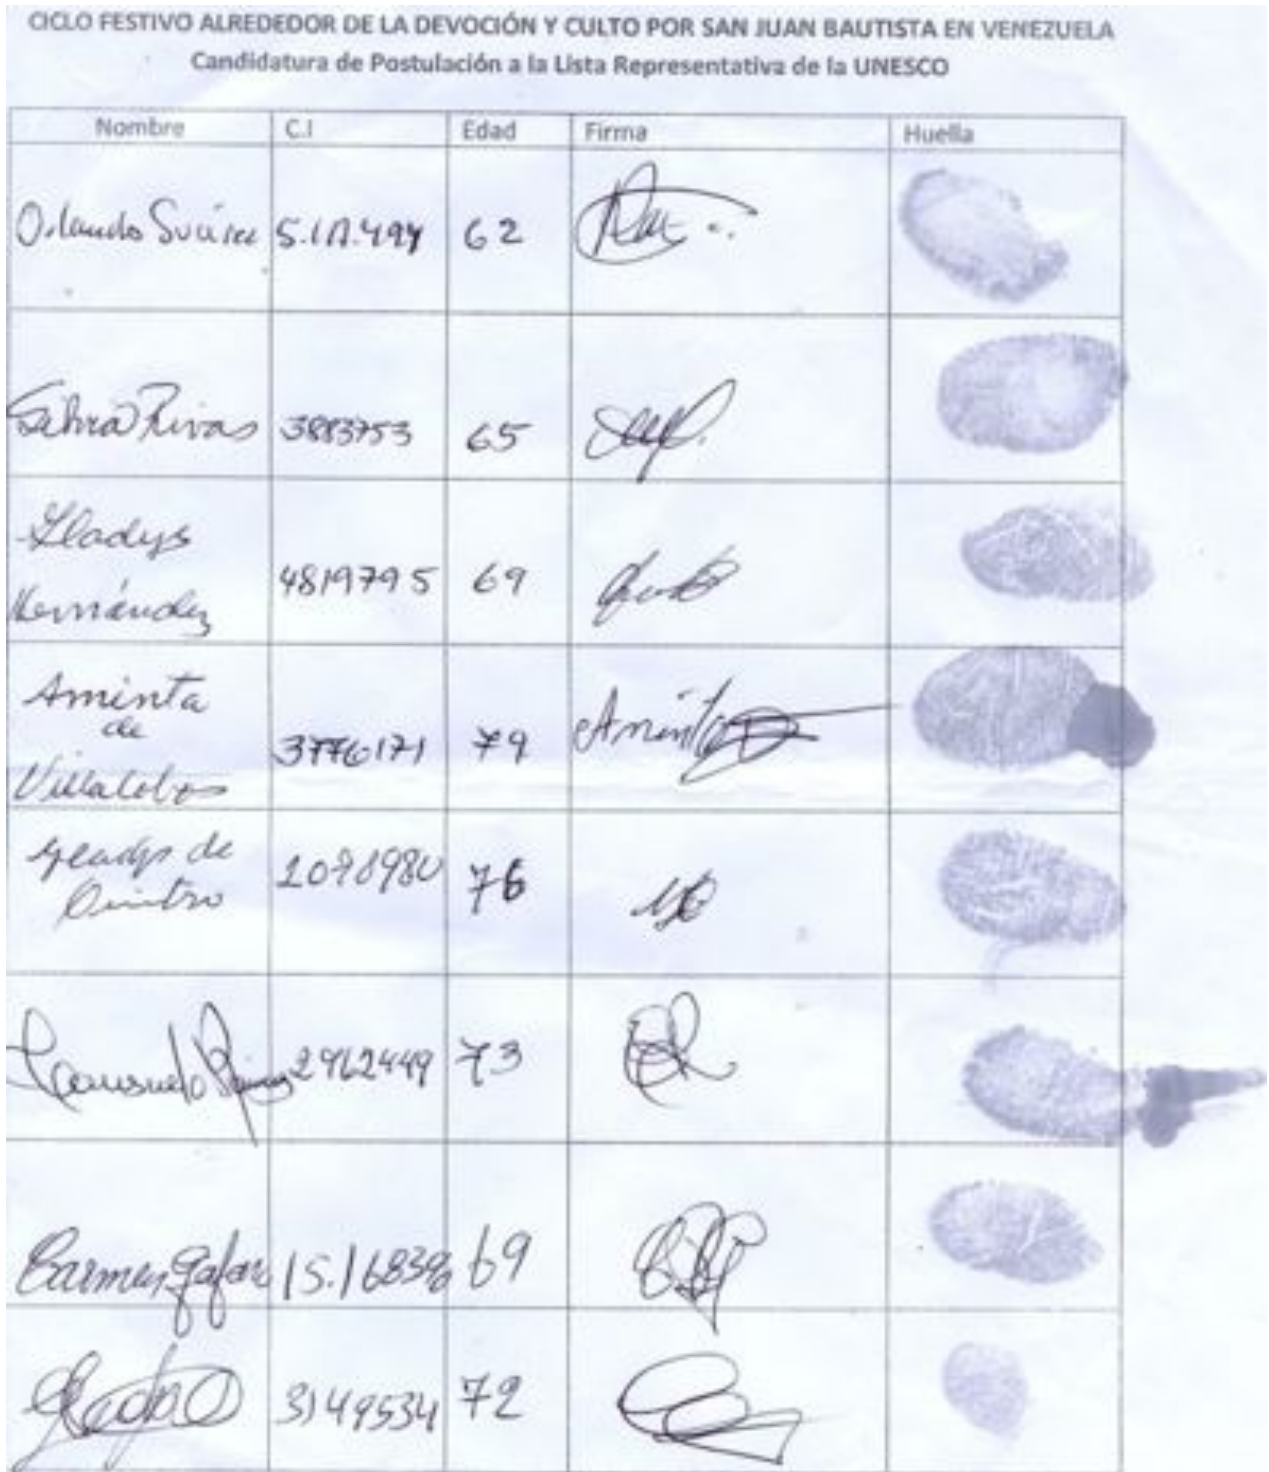 CICLO FESTIVO ALREDEDOR DE LA DEVOCIÓN Y CULTO POR SAN JUAN BAUTISTA EN VENEZUELA
Candidatura de Postulación a la Lista Representativa de la UNESCO
Nombre C.I Edad Firma Huella
Orlando Suárez 62
Rivas 3883753 65
Gladys
Hernández 4819795 69
Aminta
de
Villalobos 3776171 79 Aminta
Gladys de
76
Consuelo 2962449 73
Carmen 69
3149534 72